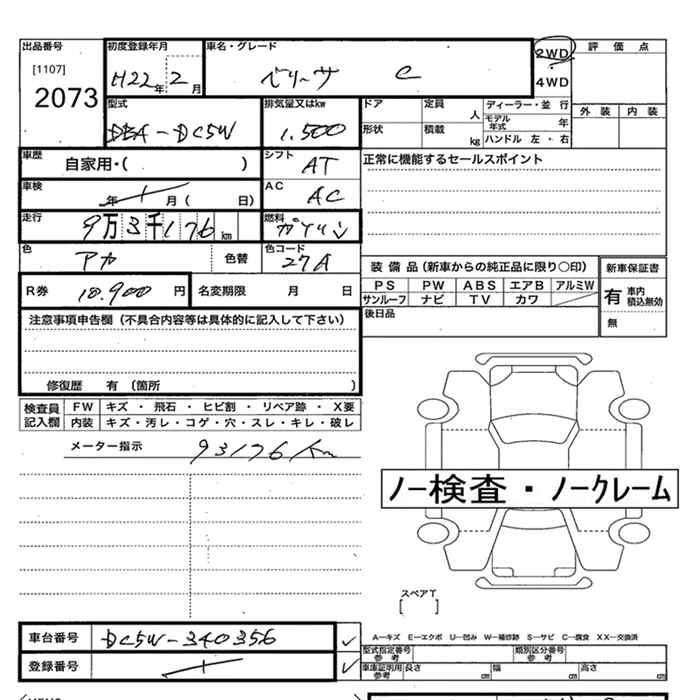 出品番号 初度登録年月 車名・グレード 2WD 評価点
[1107] 2073 H22年 2月 ベリーサ C 4WD
外装 内装
型式 排気量又はkw ドア 定員 人 ディーラー・並行
DBA-DC5W 1.500 形状 積載 kg モデル年式 年
ハンドル 左・右
車歴 自家用・( ) シフト AT 正常に機能するセールスポイント
車検 年 月( 日) AC AC
走行 9万3千176km 燃料 ガソリン
色 アカ 色替 色コード 27A
装備品(新車からの純正品に限り○印) 新車保証書
R券 10.900円 名変期限 月 日 PS PW ABS エアB アルミW
サンルーフ ナビ TV カワ 有 車内積込無効
注意事項申告欄(不具合内容等は具体的に記入して下さい) 後日品 無
修復歴 有(箇所 )
検査員記入欄 FW キズ・飛石・ヒビ割・リペア跡・X要
内装 キズ・汚レ・コゲ・穴・スレ・キレ・破レ
メーター指示 93176km
ノー検査・ノークレーム
スペアT
[ ]
車台番号 DC5W-340356 A―キズ E―エクボ U―凹み W―補修跡 S―サビ C―腐食 XX―交換済
型式指定番号参考 類別区分番号参考
登録番号 車庫証明用参考 長さ cm 幅 cm 高さ cm